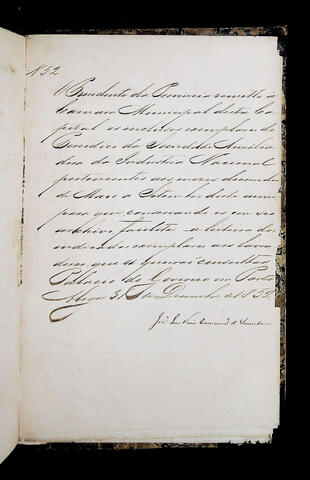 N 52
O Presidente da Provincia remette á
Camara Municipal desta Ca
pital os inclusos exemplares do
Periodico da Sociedade Auxilia
dora da Industria Nacional
pertencentes aos mezes de
de Maio a Setembro deste anno
para que conservando os em seo
archivo facilite a leitura dos
indicados exemplares aos lavra
dores que os queirão consultar
Palacio do Governo em Porto
Alegre 31 de Dezembro de 1852.